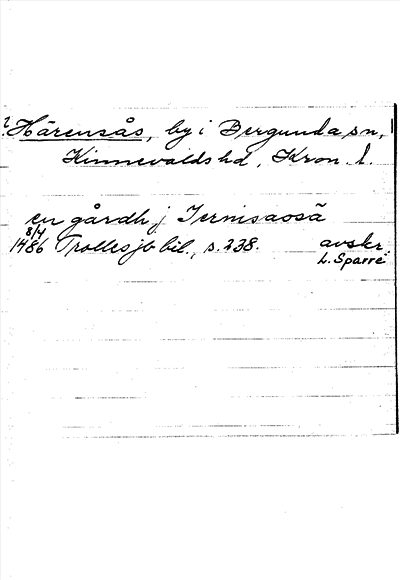 ? Härensås, by i Bergunda sn,
Kinnevalds hd, Kron. l.
en gårdh j Iernisaosä
8/4
1486 Trollesjö bil., s. 238. avskr.
L. Sparre